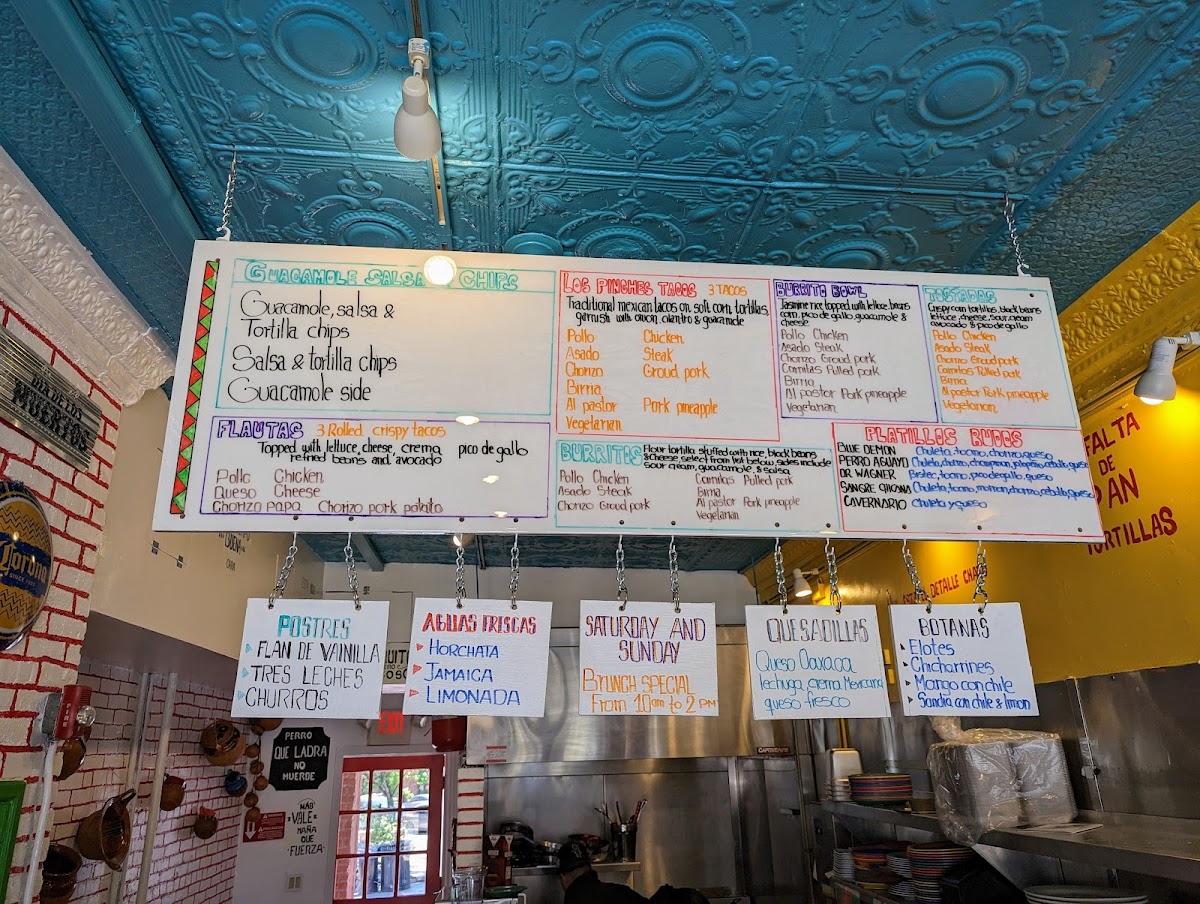 GUACAMOLE SALSA CHIFS
Guacamole, salsa &
Tortilla chips
Salsa & tortilla chips
Guacamole side
FLAUTAS 3 Rolled crispy tacos
Topped with lettuce, cheese, crema pico de gallo
refried beans and avocado
Pollo Chicken
Queso Cheese
Chorizo papa Chorizo pork potato
LOS PINCHES TACOS 3 TACOS
Traditional mexican tacos on soft corn tortillas,
garnish with onion, cilantro & guacamole
Pollo Chicken
Asado Steak
Chorizo Groud pork
Birria
Al pastor Pork pineapple
Vegetarian
BURRITO BOWL
Jasmine rice topped with lettuce, beans
corn, pico de gallo, guacamole &
cheese
Pollo Chicken
Asado Steak
Chorizo Groud pork
Carnitas Pulled pork
Birria
Al pastor Pork pineapple
Vegetarian
TOSTADAS
Crispy corn tortillas, black beans
lettuce, cheese, sour cream
avocado & pico de gallo
Pollo Chicken
Asado Steak
Chorizo Groud pork
Carnitas Pulled pork
Birria
Al pastor Pork pineapple
Vegetarian
BURRITOS Flour tortilla stuffed with rice, black beans
& cheese, select from list below, sides include
sour cream, guacamole, & salsa
Pollo Chicken
Asado Steak
Chorizo Groud pork
Carnitas Pulled pork
Birria
Al pastor Pork pineapple
Vegetarian
PLATILLOS RUDOS
BLUE DEMON Chuleta, tocino, chorizo, queso
PERRO AGUAYO Chuleta, chorizo, champinon, jalapeño, cebolla, queso
DR WAGNER Bistec, tocino, pico de gallo, queso
SANGRE CHICANA Chuleta, tocino, chorizo, cebolla, queso
CAVERNARIO Chuleta y queso
POSTRES
FLAN DE VAINILLA
TRES LECHES
CHURROS
AGUAS FRISCAS
HORCHATA
JAMAICA
LIMONADA
SATURDAY AND
SUNDAY
BRUNCH SPECIAL
From 10am to 2 PM
QUESADILLAS
Queso Oaxaca
lechuga, crema Mexicana
queso fresco
BOTANAS
Elotes
Chicharrines
Mango con chile
Sandia con chile & limon
DIA DE LOS
MUERTOS
Corona
FALTA
DE
PAN
TORTILLAS
DETALLE
FIRE
PERRO
QUE LADRA
NO
MUERDE
MÁS
VALE
MAÑA
QUE
FUERZA
CAPTIVEAIRE